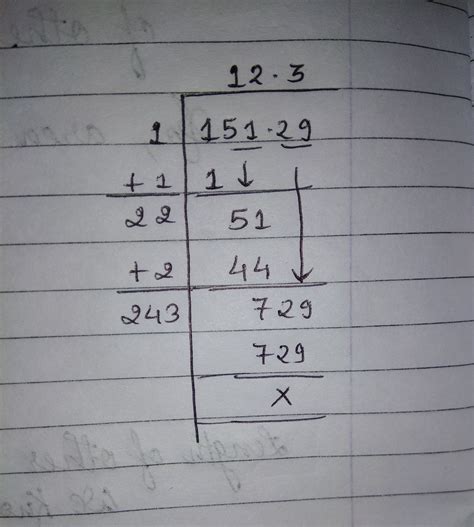 12.3
1 151.29
+1 1↓
22 51
+2 44
243 729
729
x
length of other